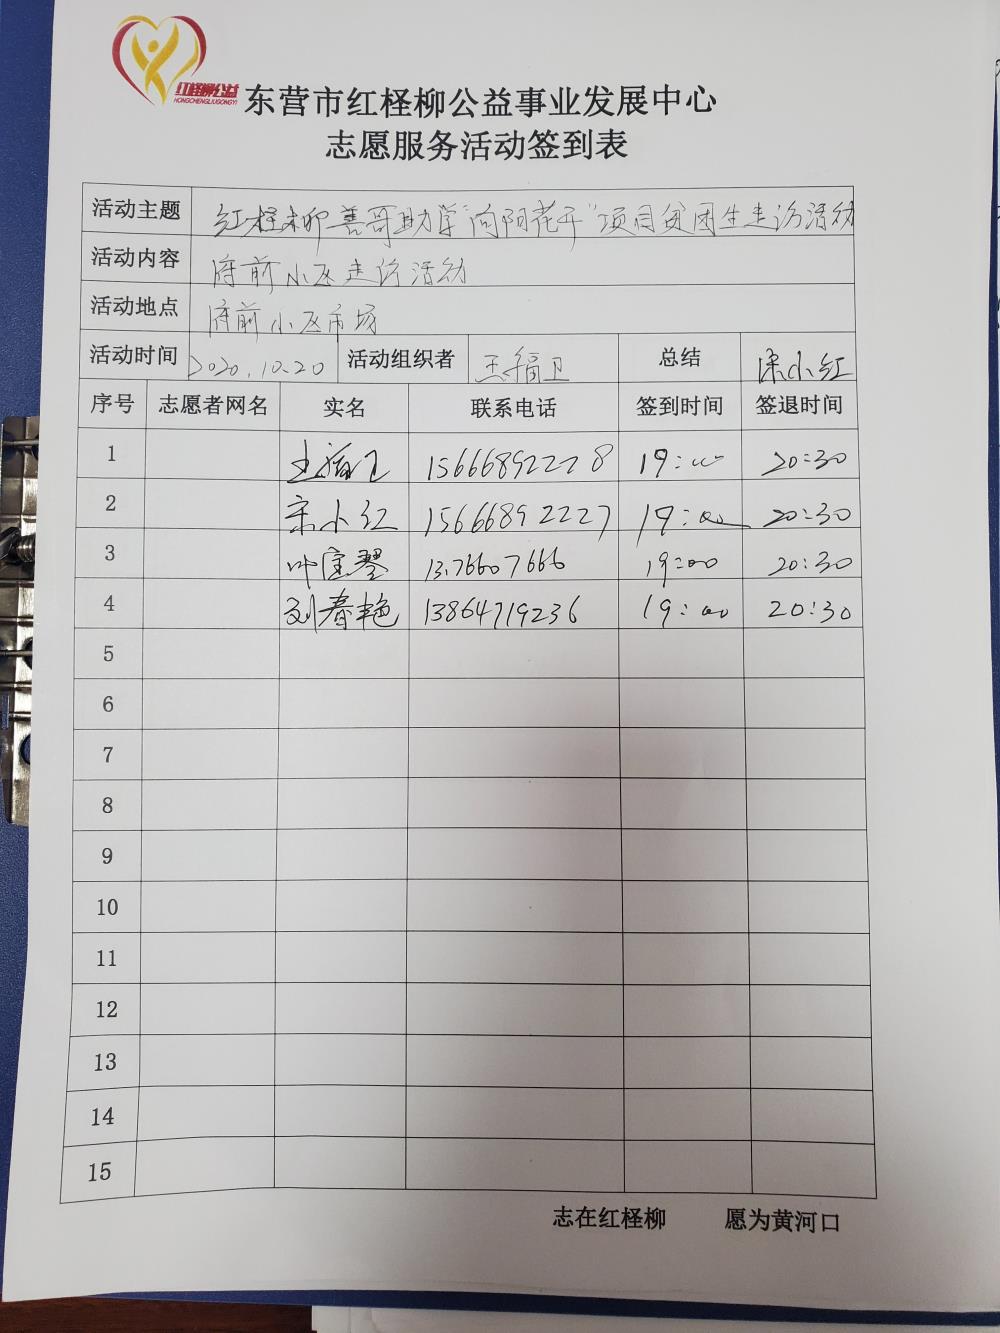 红柽柳公益
HONGCHENGLIUGONGYI
东营市红柽柳公益事业发展中心
志愿服务活动签到表
活动主题 红柽柳善哥助学“向阳花开”项目贫困生走访活动
活动内容 府前小区走访活动
活动地点 府前小区市场
活动时间 2020.10.20 活动组织者 王福卫 总结 宋小红
序号 志愿者网名 实名 联系电话 签到时间 签退时间
1 王福卫 15666892228 19:00 20:30
2 宋小红 15666892227 19:00 20:30
3 13176607666 19:00 20:30
4 刘春艳 13864719236 19:00 20:30
5
6
7
8
9
10
11
12
13
14
15
志在红柽柳 愿为黄河口